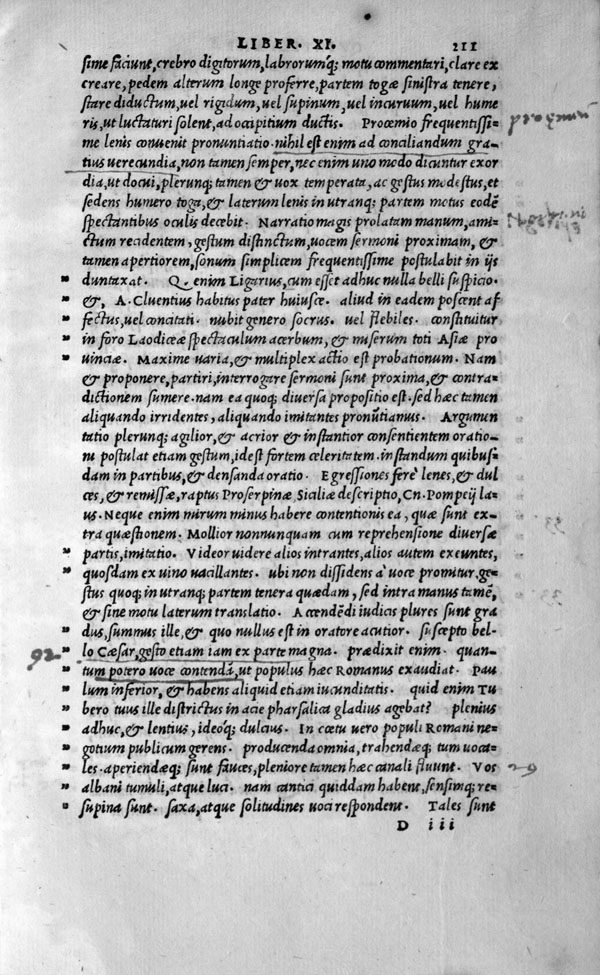 LIBER. XI. 211
sime faciunt, crebro digitorum, labrorumq; motu commentari, clare ex
creare, pedem alterum longe proferre, partem togæ sinistra tenere,
stare diductum, uel rigidum, uel supinum, uel incuruum, uel hume
ris, ut luctaturi solent, ad occipitium ductis. Proœmio frequentissi-
me lenis conuenit pronuntiatio. nihil est enim ad conciliandum gra-
tius uerecundia, non tamen semper, nec enim uno modo dicuntur exor
dia, ut docui, plerunq; tamen & uox temperata, ac gestus modestus, et
sedens humero toga, & laterum lenis in utranq; partem motus eodē
spectantibus oculis decebit. Narratio magis prolatam manum, ami-
ctum recidentem, gestum distinctum, uocem sermoni proximam, &
tamen apertiorem, sonum simplicem frequentissime postulabit in ijs
" duntaxat. Q. enim Ligarius, cum esset adhuc nulla belli suspicio.
" &, A. Cluentius habitus pater huiusce. aliud in eadem poscent af
" fectus, uel concitati. nubit genero socrus. uel flebiles. constituitur
" in foro Laodiceæ spectaculum acerbum, & miserum toti Asiæ pro
" uinciæ. Maxime uaria, & multiplex actio est probationum. Nam
& proponere, partiri, interrogare sermoni sunt proxima, & contra-
dictionem sumere. nam ea quoq; diuersa propositio est. sed hæc tamen
aliquando irridentes, aliquando imitantes pronūtiamus. Argumen
tatio plerunq; agilior, & acrior & instantior consentientem oratio-
ni postulat etiam gestum, id est fortem celeritatem. instandum quibus-
dam in partibus, & densanda oratio. Egressiones ferè lenes, & dul
ces, & remissæ, raptus Proserpinæ, Siciliæ descriptio, Cn. Pompeij la-
us. Neque enim mirum minus habere contentionis ea, quæ sunt ex-
tra quæstionem. Mollior nonnunquam cum reprehensione diuersæ
" partis, imitatio. Videor uidere alios intrantes, alios autem exeuntes,
" quosdam ex uino uacillantes. ubi non dissidens à uoce promitur. ge-
stus quoq; in utranq; partem tenera quædam, sed intra manus tamē,
& sine motu laterum translatio. Accendēdi iudicis plures sunt gra
" dus, summus ille, & quo nullus est in oratore acutior. suscepto bel-
" lo Cæsar, gesto etiam iam ex parte magna. prædixit enim. quan-
" tum potero uoce contendā, ut populus hæc Romanus exaudiat. Pau
" lum inferior, & habens aliquid etiam iucunditatis. quid enim Tu
" bero tuus ille districtus in acie pharsalica gladius agebat? plenius
" adhuc, & lentius, ideoq; dulcius. In cœtu uero populi Romani ne-
" gotium publicum gerens. producenda omnia, trahendæq; tum uoca-
" les. aperiendæq; sunt fauces, pleniore tamen hæc canali fluunt. Vos
" albani tumuli, atque luci. nam cantici quiddam habent, sensimq; re-
" supina sunt. saxa, atque solitudines uoci respondent. Tales sunt
D iii